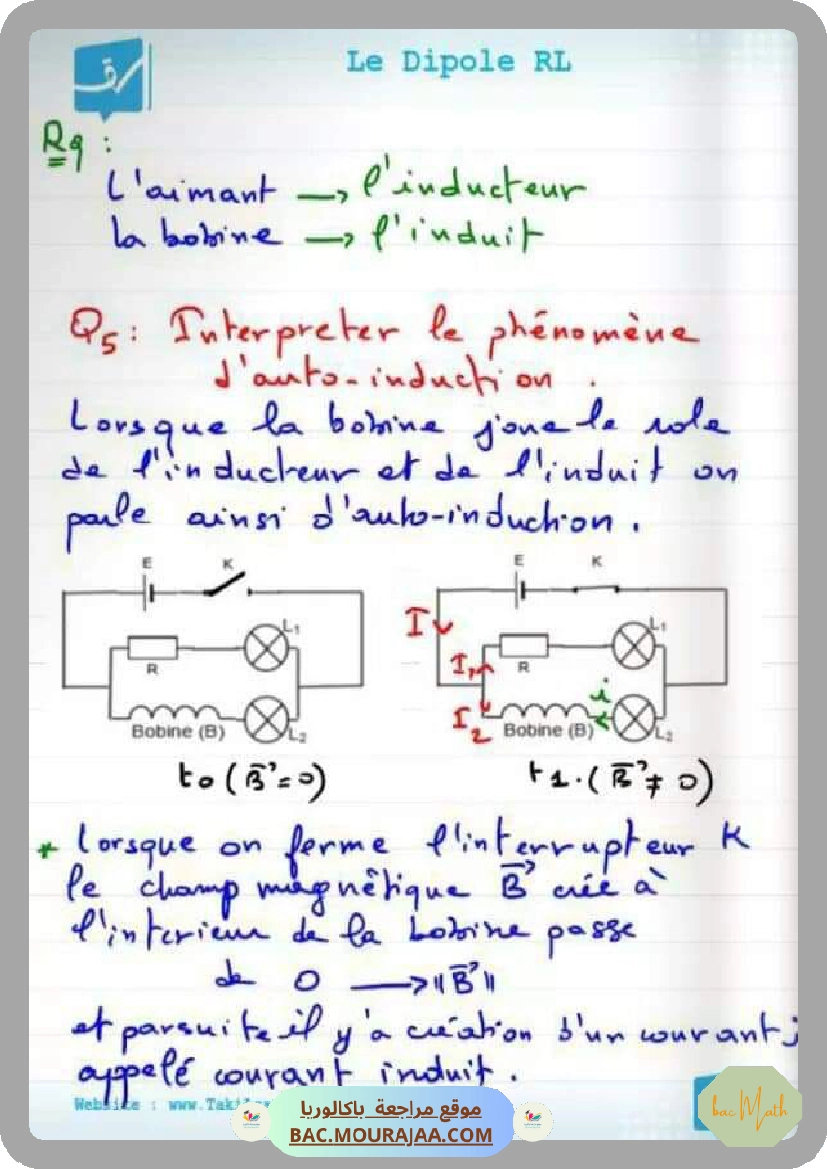 رق
Le Dipole RL
Rq :
L'aimant → l'inducteur
la bobine → l'induit
Q5 : Interpreter le phénomène
d'auto-induction .
Lorsque la bobine joue le role
de l'inducteur et de l'induit on
parle ainsi d'auto-induction .
E K
L1
R
Bobine (B) L2
E K
I L1
I1 R
i
I2 Bobine (B) L2
t0 (B⃗ = 0) t1 . (B⃗ ≠ 0)
* Lorsque on ferme l'interrupteur K
le champ magnêtique B⃗ crée à
l'interieur de la bobine passe
de 0 → ||B⃗||
et parsuite il y'a création d'un courant i
appelé courant induit .
Website : www.Taki
موقع مراجعة باكالوريا
BAC.MOURAJAA.COM
bac Math